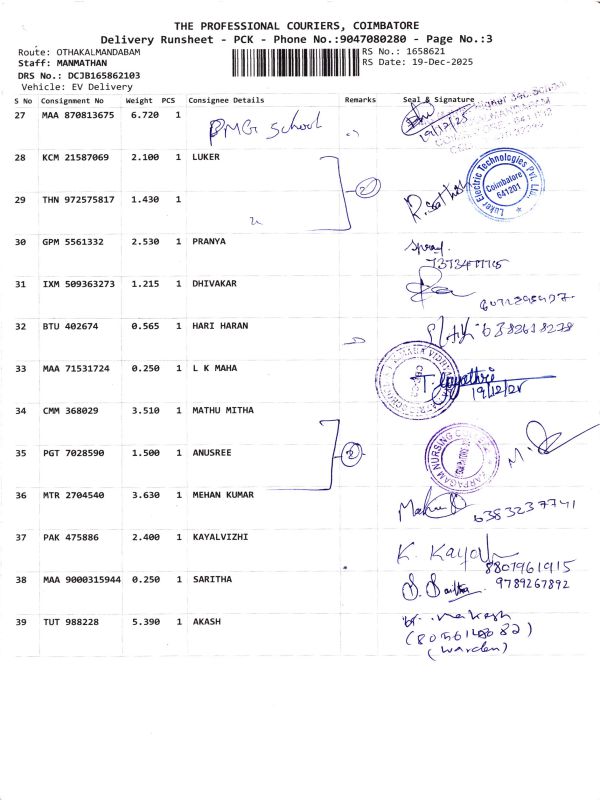 THE PROFESSIONAL COURIERS, COIMBATORE
Delivery Runsheet - PCK - Phone No.:9047080280 - Page No.:3
Route: OTHAKALMANDABAM
RS No.: 1658621
Staff: MANMATHAN
RS Date: 19-Dec-2025
DRS No.: DCJB165862103
Vehicle: EV Delivery
S No Consignment No Weight PCS Consignee Details Remarks Seal & Signature
27 MAA 870813675 6.720 1 PMG School 19/12/25
28 KCM 21587069 2.100 1 LUKER 2
Luker Electric Technologies Pvt. Ltd. Coimbatore 641201
29 THN 972575817 1.430 1
30 GPM 5561332 2.530 1 PRANYA
31 IXM 509363273 1.215 1 DHIVAKAR
32 BTU 402674 0.565 1 HARI HARAN
33 MAA 71531724 0.250 1 L K MAHA T. Gayathri
19/12/25
34 CMM 368029 3.510 1 MATHU MITHA
35 PGT 7028590 1.500 1 ANUSREE 2
KARPAGAM NURSING
36 MTR 2704540 3.630 1 MEHAN KUMAR 6383237741
37 PAK 475886 2.400 1 KAYALVIZHI K. Kayal
8807961915
38 MAA 9000315944 0.250 1 SARITHA S. Saritha 9789267892
39 TUT 988228 5.390 1 AKASH
(Warden)